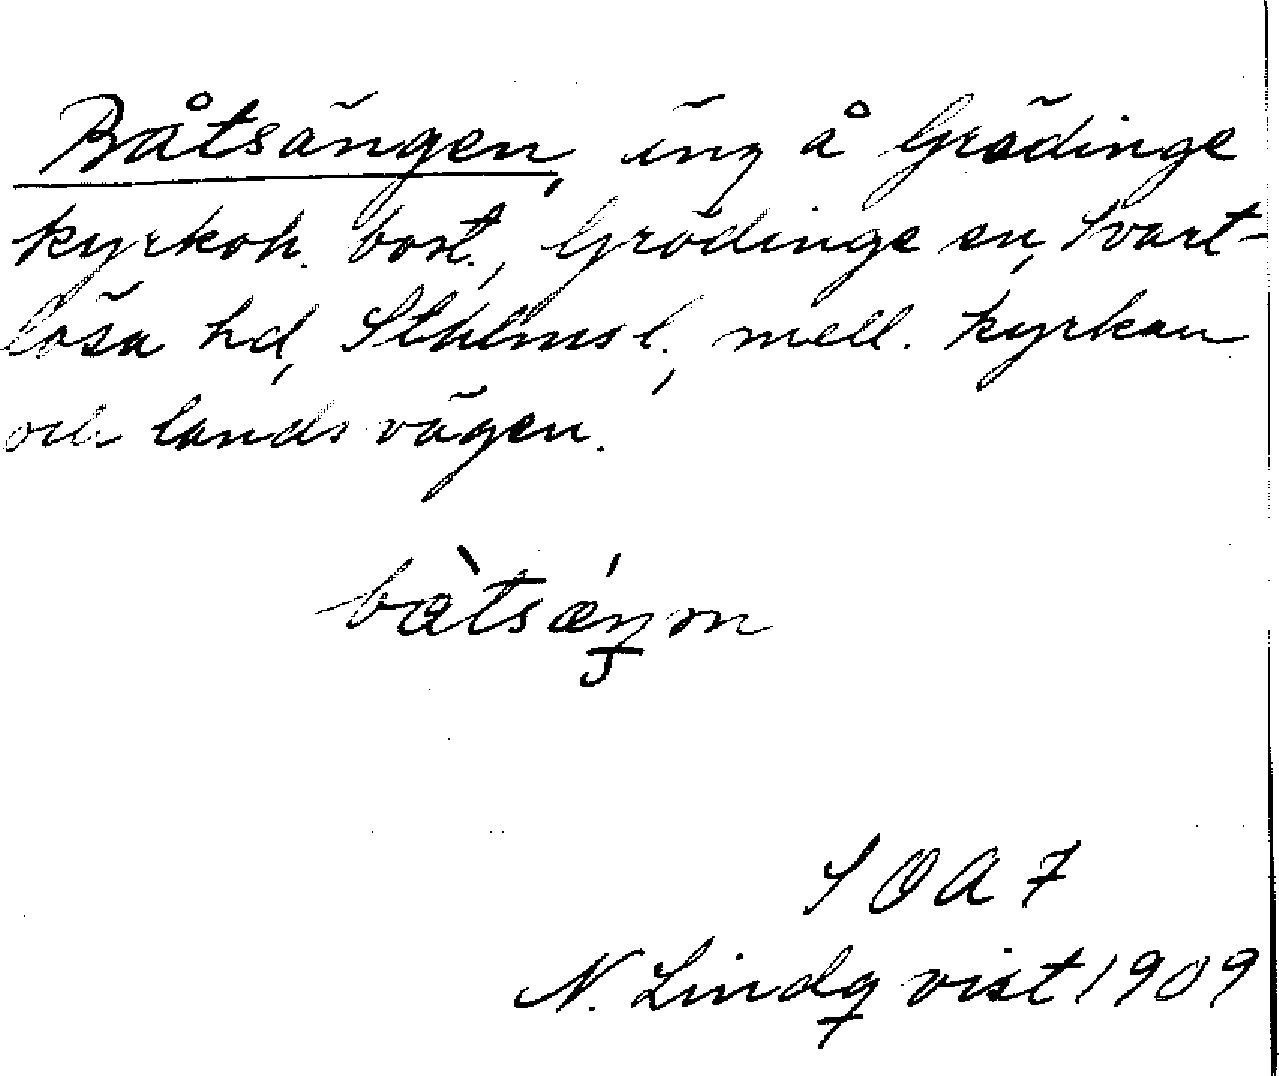 Båtsängen, äng å Grödinge
kyrkoh. bost., Grödinge sn, Svart-
lösa hd, Sthlms l., mell. kyrkan
och landsvägen.
SOA 7
N. Lindqvist 1909